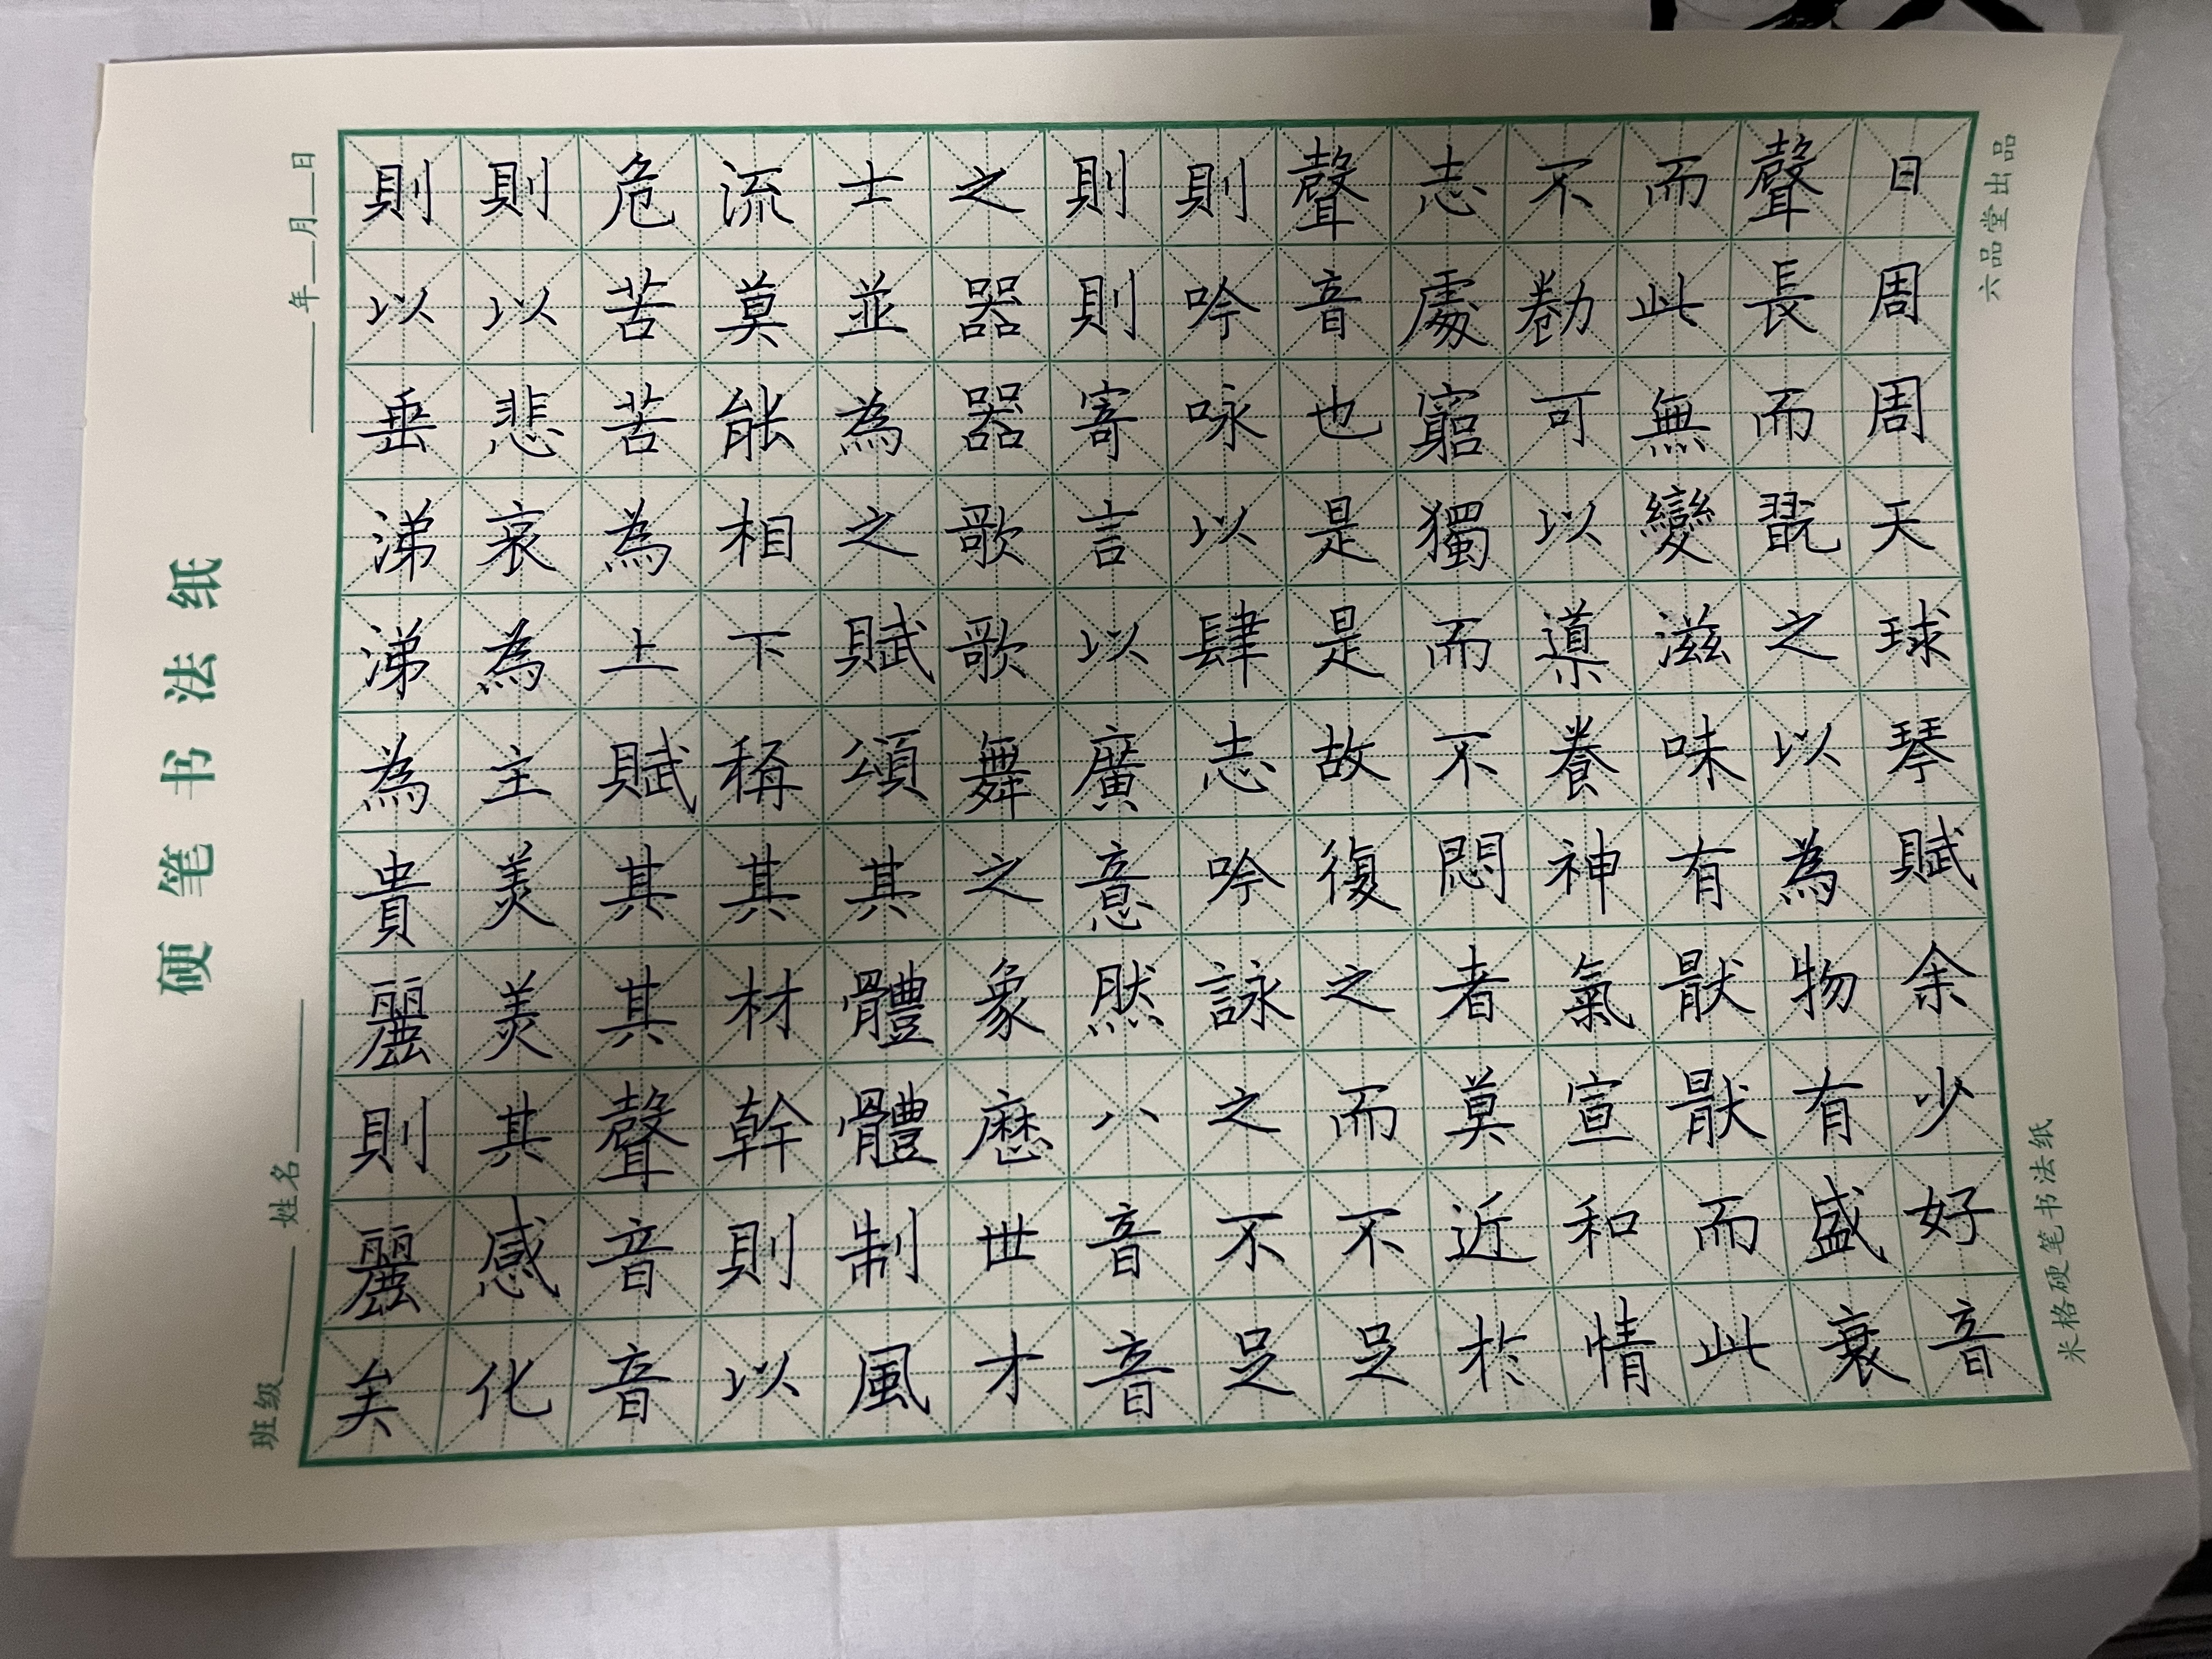 硬笔书法纸
班级 姓名
年 月 日
日周周天球琴賦余少好音
聲長而翫之以為物有盛衰
而此無變滋味有猒猒而此
不勌可以導養神氣宣和情
志處窮獨而不悶者莫近於
聲音也是是故復之而不足
則吟詠以肆志吟詠之不足
則則寄言以廣意然八音音
之器器歌歌舞之象歷世才
士並為之賦頌其體體制風
流莫襲相下稱其材幹則以
危苦苦為上賦其其聲音音
則以悲哀為主美美其感化
則以垂涕涕為貴麗則麗矣
六品堂出品
米格硬笔书法纸